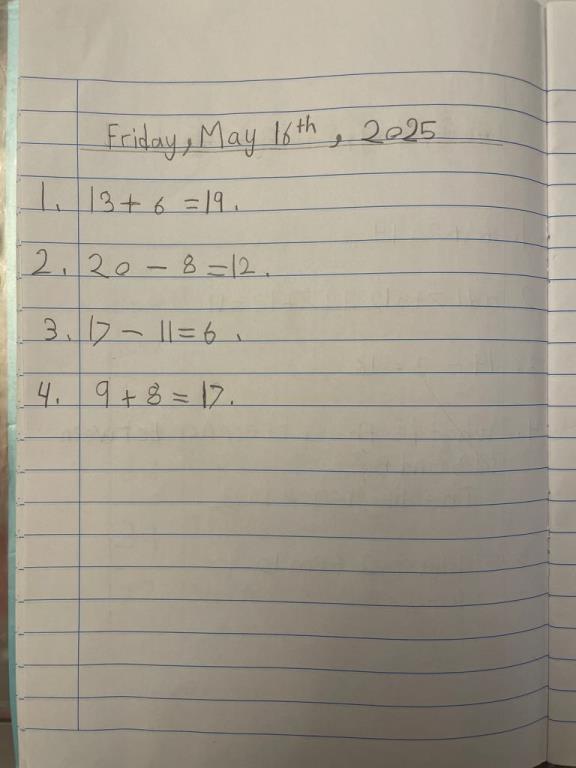 Friday, May 16th, 2025
1. 13 + 6 = 19.
2. 20 - 8 = 12.
3. 17 - 11 = 6.
4. 9 + 8 = 17.